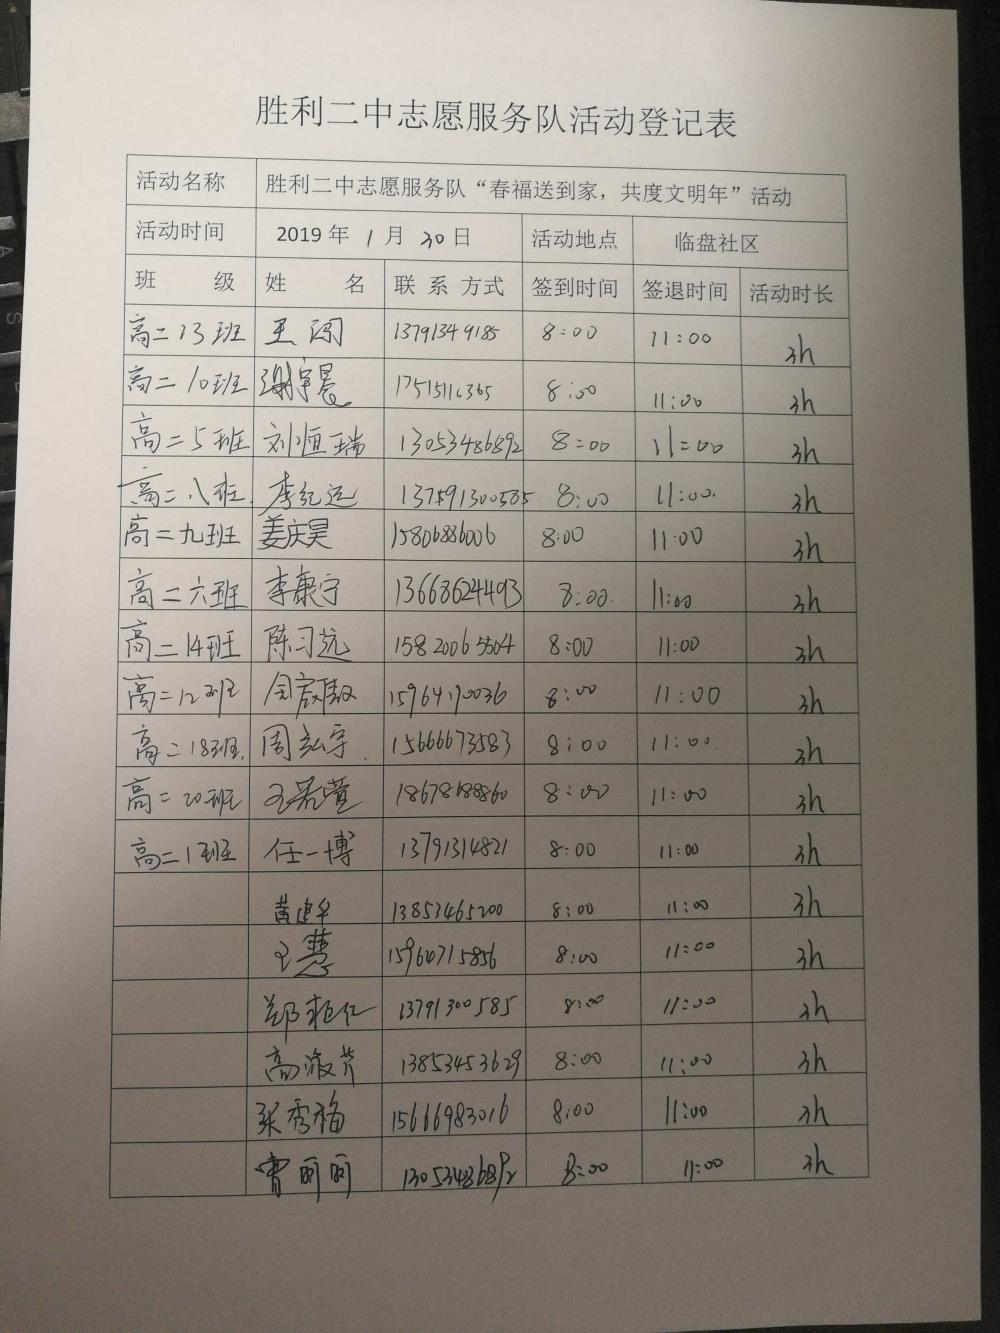 胜利二中志愿服务队活动登记表
活动名称 胜利二中志愿服务队“春福送到家，共度文明年”活动
活动时间 2019 年 1 月 30 日 活动地点 临盘社区
班 级 姓 名 联 系 方式 签到时间 签退时间 活动时长
高二13班 王闯 13791349185 8:00 11:00 3h
高二10班 谢宇晨 17515116365 8:00 11:00 3h
高二5班 刘恒瑞 13053486892 8:00 11:00 3h
高二八班 李纪远 8:00 11:00 3h
高二九班 姜庆昊 15806886006 8:00 11:00 3h
高二六班 李康宁 13668624493 8:00 11:00 3h
高二14班 陈习远 15820065504 8:00 11:00 3h
高二12班 8:00 11:00 3h
高二18班 周弘宇 15666673583 8:00 11:00 3h
高二20班 王若萱 18678688860 8:00 11:00 3h
高二1班 任一博 13791314821 8:00 11:00 3h
黄建华 13853465200 8:00 11:00 3h
王慧 15964715856 8:00 11:00 3h
郑桂红 13791300585 8:00 11:00 3h
高淑芹 13853453629 8:00 11:00 3h
张秀梅 15666983016 8:00 11:00 3h
曹丽丽 13053486892 8:00 11:00 3h